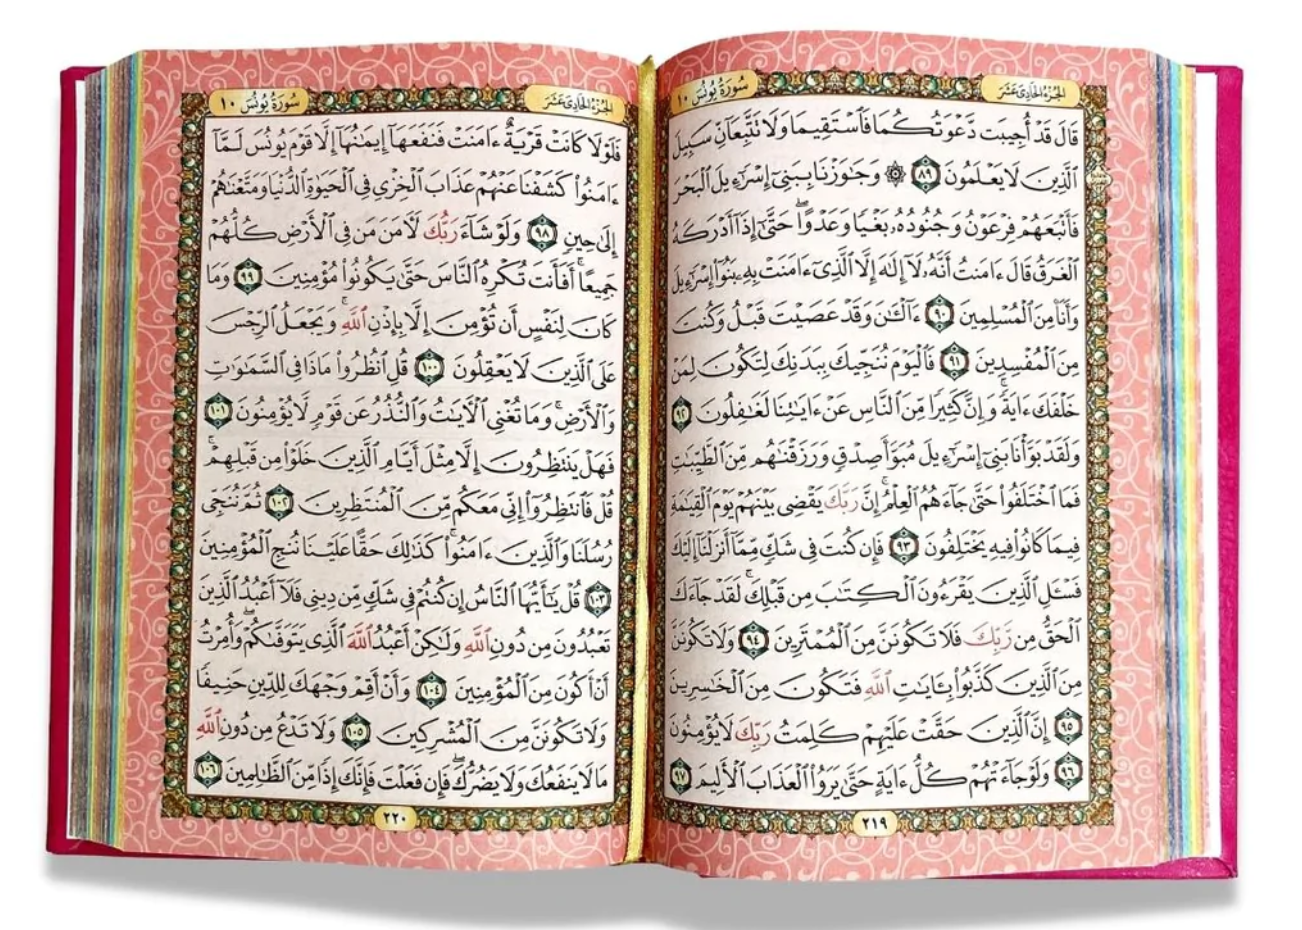 الجزء الحادي عشر
سورة يونس ١٠
قَالَ قَدْ أُجِيبَت دَّعْوَتُكُمَا فَٱسْتَقِيمَا وَلَا تَتَّبِعَآنِّ سَبِيلَ
ٱلَّذِينَ لَا يَعْلَمُونَ ٨٩ ۞ وَجَٰوَزْنَا بِبَنِىٓ إِسْرَٰٓءِيلَ ٱلْبَحْرَ
فَأَتْبَعَهُمْ فِرْعَوْنُ وَجُنُودُهُۥ بَغْيًا وَعَدْوًا ۖ حَتَّىٰٓ إِذَآ أَدْرَكَهُ
ٱلْغَرَقُ قَالَ ءَامَنتُ أَنَّهُۥ لَآ إِلَٰهَ إِلَّا ٱلَّذِىٓ ءَامَنَتْ بِهِۦ بَنُوٓا۟ إِسْرَٰٓءِيلَ
وَأَنَا۠ مِنَ ٱلْمُسْلِمِينَ ٩٠ ءَآلْـَٰٔنَ وَقَدْ عَصَيْتَ قَبْلُ وَكُنتَ
مِنَ ٱلْمُفْسِدِينَ ٩١ فَٱلْيَوْمَ نُنَجِّيكَ بِبَدَنِكَ لِتَكُونَ لِمَنْ
خَلْفَكَ ءَايَةً ۚ وَإِنَّ كَثِيرًا مِّنَ ٱلنَّاسِ عَنْ ءَايَٰتِنَا لَغَٰفِلُونَ ٩٢
وَلَقَدْ بَوَّأْنَا بَنِىٓ إِسْرَٰٓءِيلَ مُبَوَّأَ صِدْقٍ وَرَزَقْنَٰهُم مِّنَ ٱلطَّيِّبَٰتِ
فَمَا ٱخْتَلَفُوا۟ حَتَّىٰ جَآءَهُمُ ٱلْعِلْمُ ۚ إِنَّ رَبَّكَ يَقْضِى بَيْنَهُمْ يَوْمَ ٱلْقِيَٰمَةِ
فِيمَا كَانُوا۟ فِيهِ يَخْتَلِفُونَ ٩٣ فَإِن كُنتَ فِى شَكٍّ مِّمَّآ أَنزَلْنَآ إِلَيْكَ
فَسْـَٔلِ ٱلَّذِينَ يَقْرَءُونَ ٱلْكِتَٰبَ مِن قَبْلِكَ ۚ لَقَدْ جَآءَكَ
ٱلْحَقُّ مِن رَّبِّكَ فَلَا تَكُونَنَّ مِنَ ٱلْمُمْتَرِينَ ٩٤ وَلَا تَكُونَنَّ
مِنَ ٱلَّذِينَ كَذَّبُوا۟ بِـَٔايَٰتِ ٱللَّهِ فَتَكُونَ مِنَ ٱلْخَٰسِرِينَ
٩٥ إِنَّ ٱلَّذِينَ حَقَّتْ عَلَيْهِمْ كَلِمَتُ رَبِّكَ لَا يُؤْمِنُونَ
٩٦ وَلَوْ جَآءَتْهُمْ كُلُّ ءَايَةٍ حَتَّىٰ يَرَوُا۟ ٱلْعَذَابَ ٱلْأَلِيمَ ٩٧
٢١٩
الجزء الحادي عشر
سورة يونس ١٠
فَلَوْلَا كَانَتْ قَرْيَةٌ ءَامَنَتْ فَنَفَعَهَآ إِيمَٰنُهَآ إِلَّا قَوْمَ يُونُسَ لَمَّآ
ءَامَنُوا۟ كَشَفْنَا عَنْهُمْ عَذَابَ ٱلْخِزْىِ فِى ٱلْحَيَوٰةِ ٱلدُّنْيَا وَمَتَّعْنَٰهُمْ
إِلَىٰ حِينٍ ٩٨ وَلَوْ شَآءَ رَبُّكَ لَـَٔامَنَ مَن فِى ٱلْأَرْضِ كُلُّهُمْ
جَمِيعًا ۚ أَفَأَنتَ تُكْرِهُ ٱلنَّاسَ حَتَّىٰ يَكُونُوا۟ مُؤْمِنِينَ ٩٩ وَمَا
كَانَ لِنَفْسٍ أَن تُؤْمِنَ إِلَّا بِإِذْنِ ٱللَّهِ ۚ وَيَجْعَلُ ٱلرِّجْسَ
عَلَى ٱلَّذِينَ لَا يَعْقِلُونَ ١٠٠ قُلِ ٱنظُرُوا۟ مَاذَا فِى ٱلسَّمَٰوَٰتِ
وَٱلْأَرْضِ ۚ وَمَا تُغْنِى ٱلْـَٔايَٰتُ وَٱلنُّذُرُ عَن قَوْمٍ لَّا يُؤْمِنُونَ ١٠١
فَهَلْ يَنتَظِرُونَ إِلَّا مِثْلَ أَيَّامِ ٱلَّذِينَ خَلَوْا۟ مِن قَبْلِهِمْ ۚ
قُلْ فَٱنتَظِرُوٓا۟ إِنِّى مَعَكُم مِّنَ ٱلْمُنتَظِرِينَ ١٠٢ ثُمَّ نُنَجِّى
رُسُلَنَا وَٱلَّذِينَ ءَامَنُوا۟ ۚ كَذَٰلِكَ حَقًّا عَلَيْنَا نُنجِ ٱلْمُؤْمِنِينَ
١٠٣ قُلْ يَٰٓأَيُّهَا ٱلنَّاسُ إِن كُنتُمْ فِى شَكٍّ مِّن دِينِى فَلَآ أَعْبُدُ ٱلَّذِينَ
تَعْبُدُونَ مِن دُونِ ٱللَّهِ وَلَٰكِنْ أَعْبُدُ ٱللَّهَ ٱلَّذِى يَتَوَفَّىٰكُمْ ۖ وَأُمِرْتُ
أَنْ أَكُونَ مِنَ ٱلْمُؤْمِنِينَ ١٠٤ وَأَنْ أَقِمْ وَجْهَكَ لِلدِّينِ حَنِيفًا
وَلَا تَكُونَنَّ مِنَ ٱلْمُشْرِكِينَ ١٠٥ وَلَا تَدْعُ مِن دُونِ ٱللَّهِ
مَا لَا يَنفَعُكَ وَلَا يَضُرُّكَ ۖ فَإِن فَعَلْتَ فَإِنَّكَ إِذًا مِّنَ ٱلظَّٰلِمِينَ ١٠٦
٢٢٠